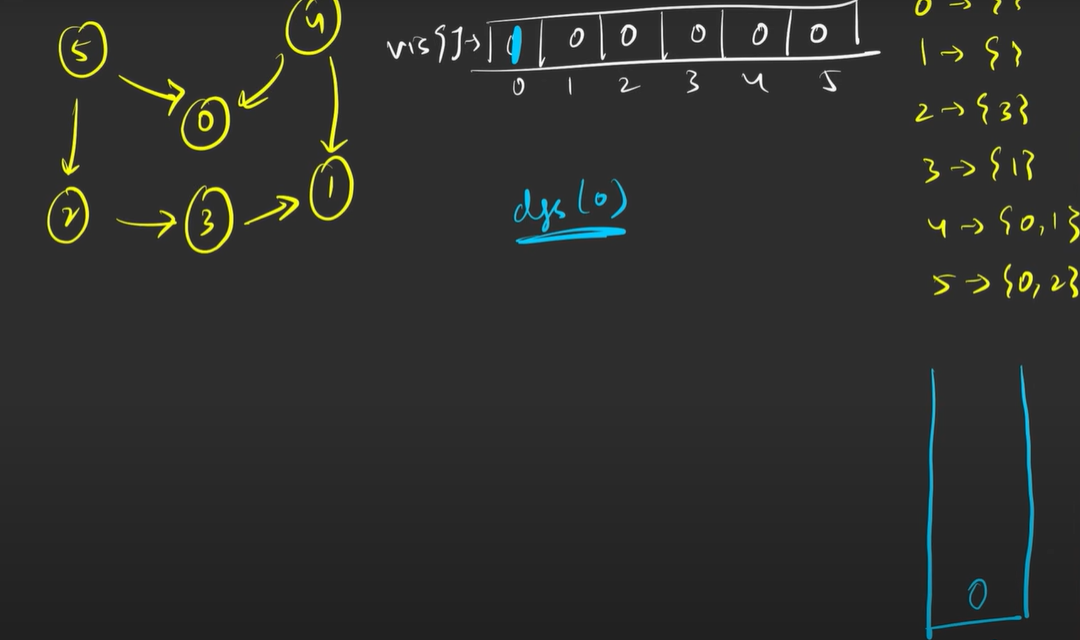 5
4
0
2
3
1
vis[]→ 0 0 0 0 0
0 1 2 3 4 5
dfs(0)
0 → { }
1 → { }
2 → {3}
3 → {1}
4 → {0,1}
5 → {0,2}
0